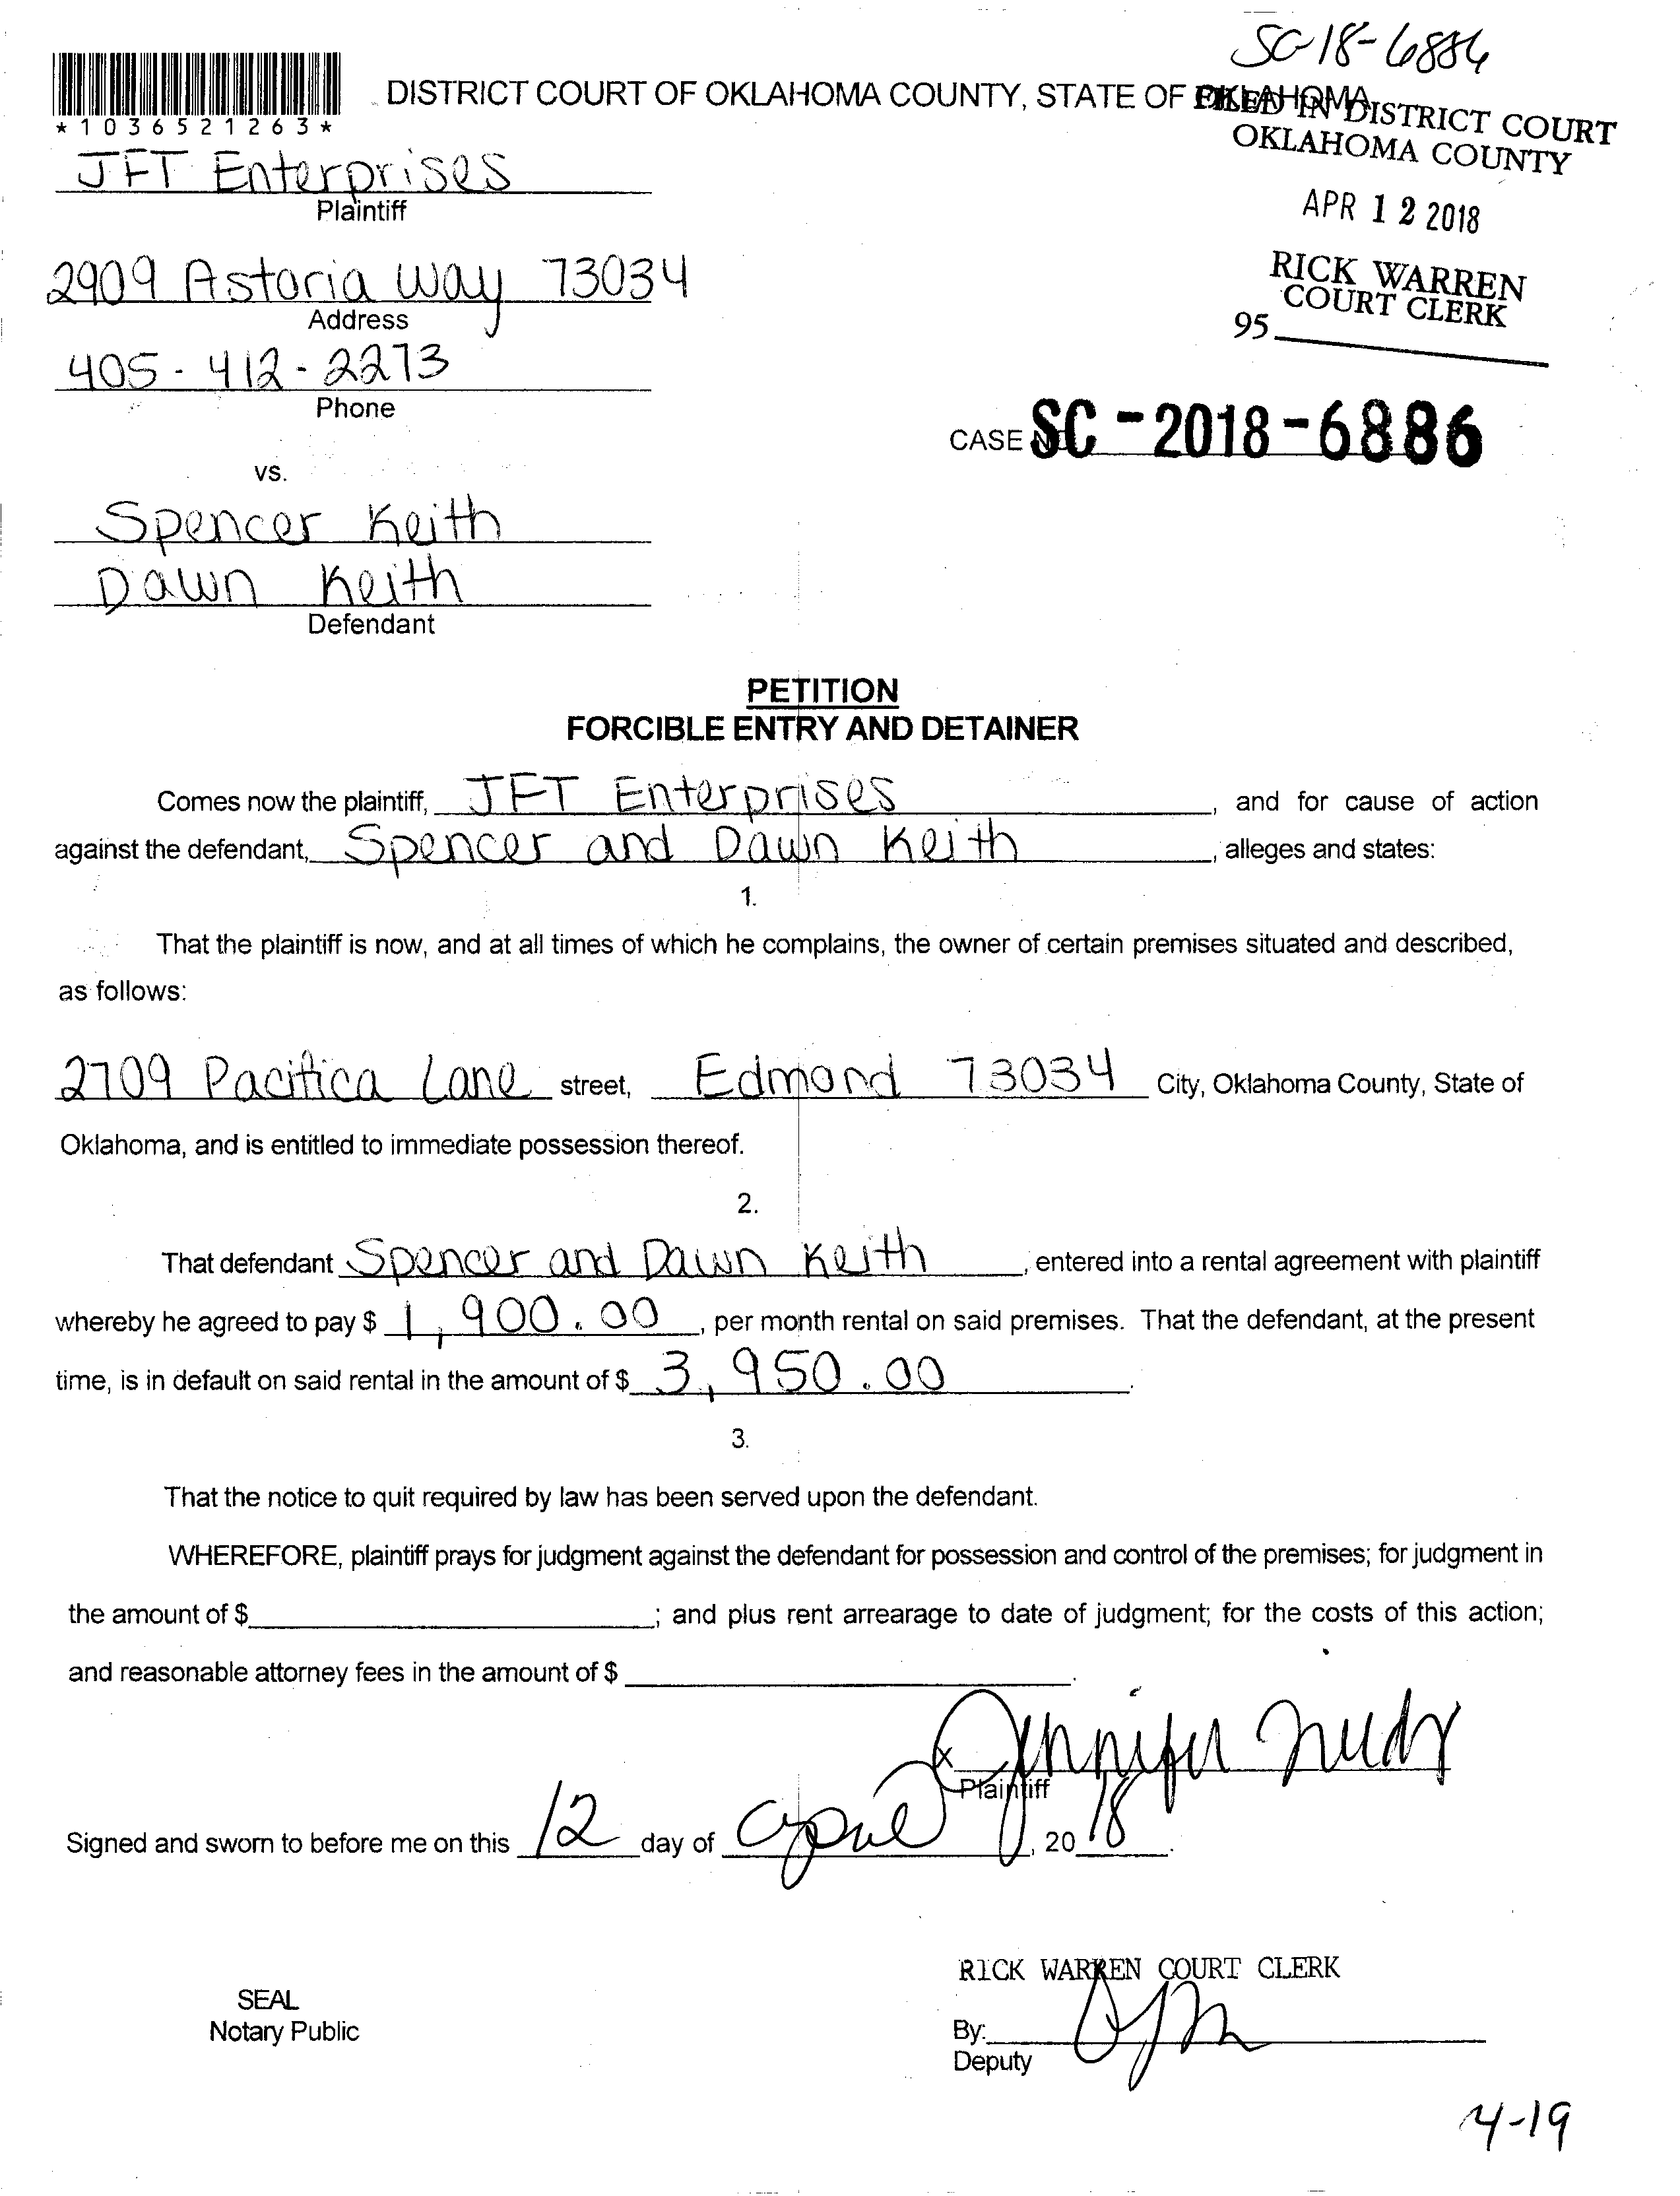 SC-18-6886
DISTRICT COURT OF OKLAHOMA COUNTY, STATE OF OKLAHOMA
*1036521263*
FILED IN DISTRICT COURT
OKLAHOMA COUNTY
JFT Enterprises
Plaintiff
APR 12 2018
2909 Astoria Way 73034
Address
RICK WARREN
COURT CLERK
95
405-412-2273
Phone
CASE NO. SC-2018-6886
vs.
Spencer Keith
Dawn Keith
Defendant
PETITION
FORCIBLE ENTRY AND DETAINER
Comes now the plaintiff, JFT Enterprises, and for cause of action
against the defendant, Spencer and Dawn Keith, alleges and states:
1.
That the plaintiff is now, and at all times of which he complains, the owner of certain premises situated and described,
as follows:
2709 Pacifica Lane street, Edmond 73034 City, Oklahoma County, State of
Oklahoma, and is entitled to immediate possession thereof.
2.
That defendant Spencer and Dawn Keith, entered into a rental agreement with plaintiff
whereby he agreed to pay $ 1,900.00, per month rental on said premises. That the defendant, at the present
time, is in default on said rental in the amount of $ 3,950.00.
3.
That the notice to quit required by law has been served upon the defendant.
WHEREFORE, plaintiff prays for judgment against the defendant for possession and control of the premises; for judgment in
the amount of $ ; and plus rent arrearage to date of judgment; for the costs of this action;
and reasonable attorney fees in the amount of $ .
x Jennifer
Plaintiff
Signed and sworn to before me on this 12 day of April, 2018.
RICK WARREN COURT CLERK
SEAL
Notary Public
By:
Deputy
4-19